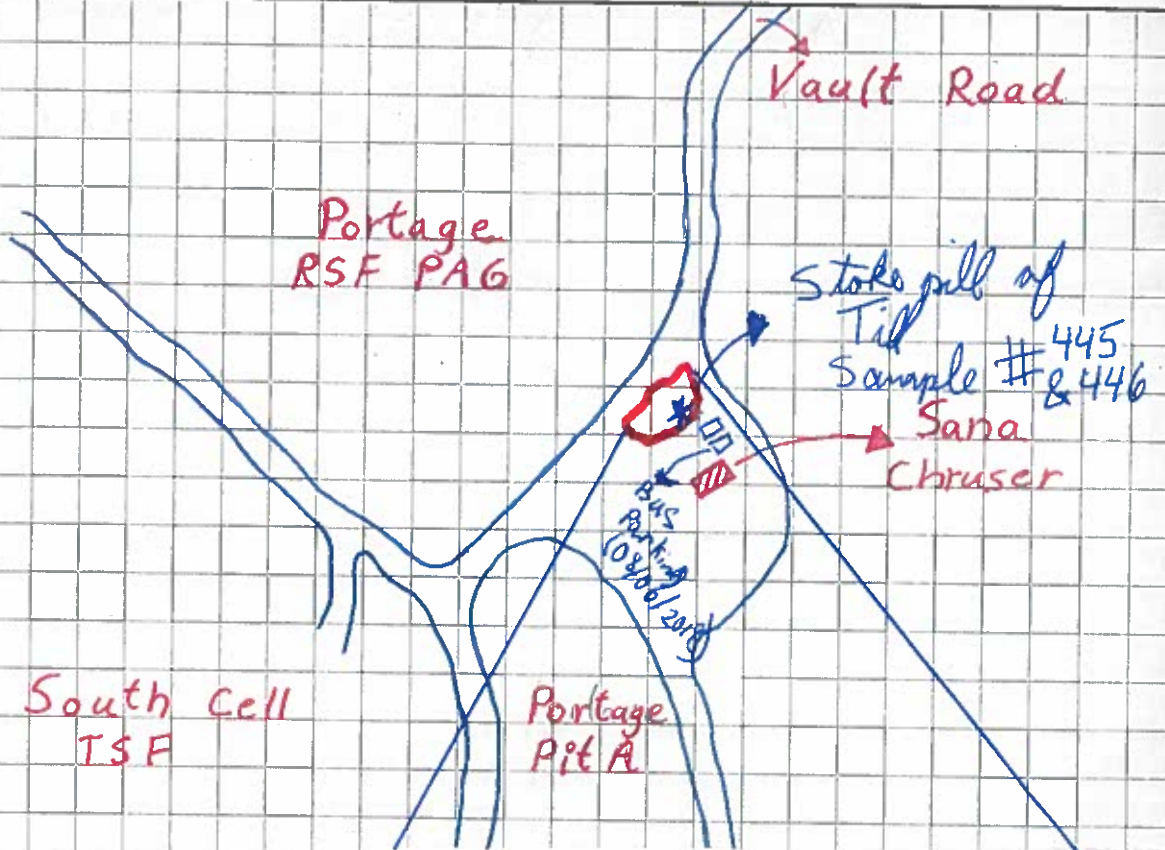 Vault Road
Portage
RSF PAG
Stoke pill of
Till
Sample # 445
& 446
Sana
Chruser
Bus
Parking
(08/06/2018)
South Cell
TSF
Portage
Pit A